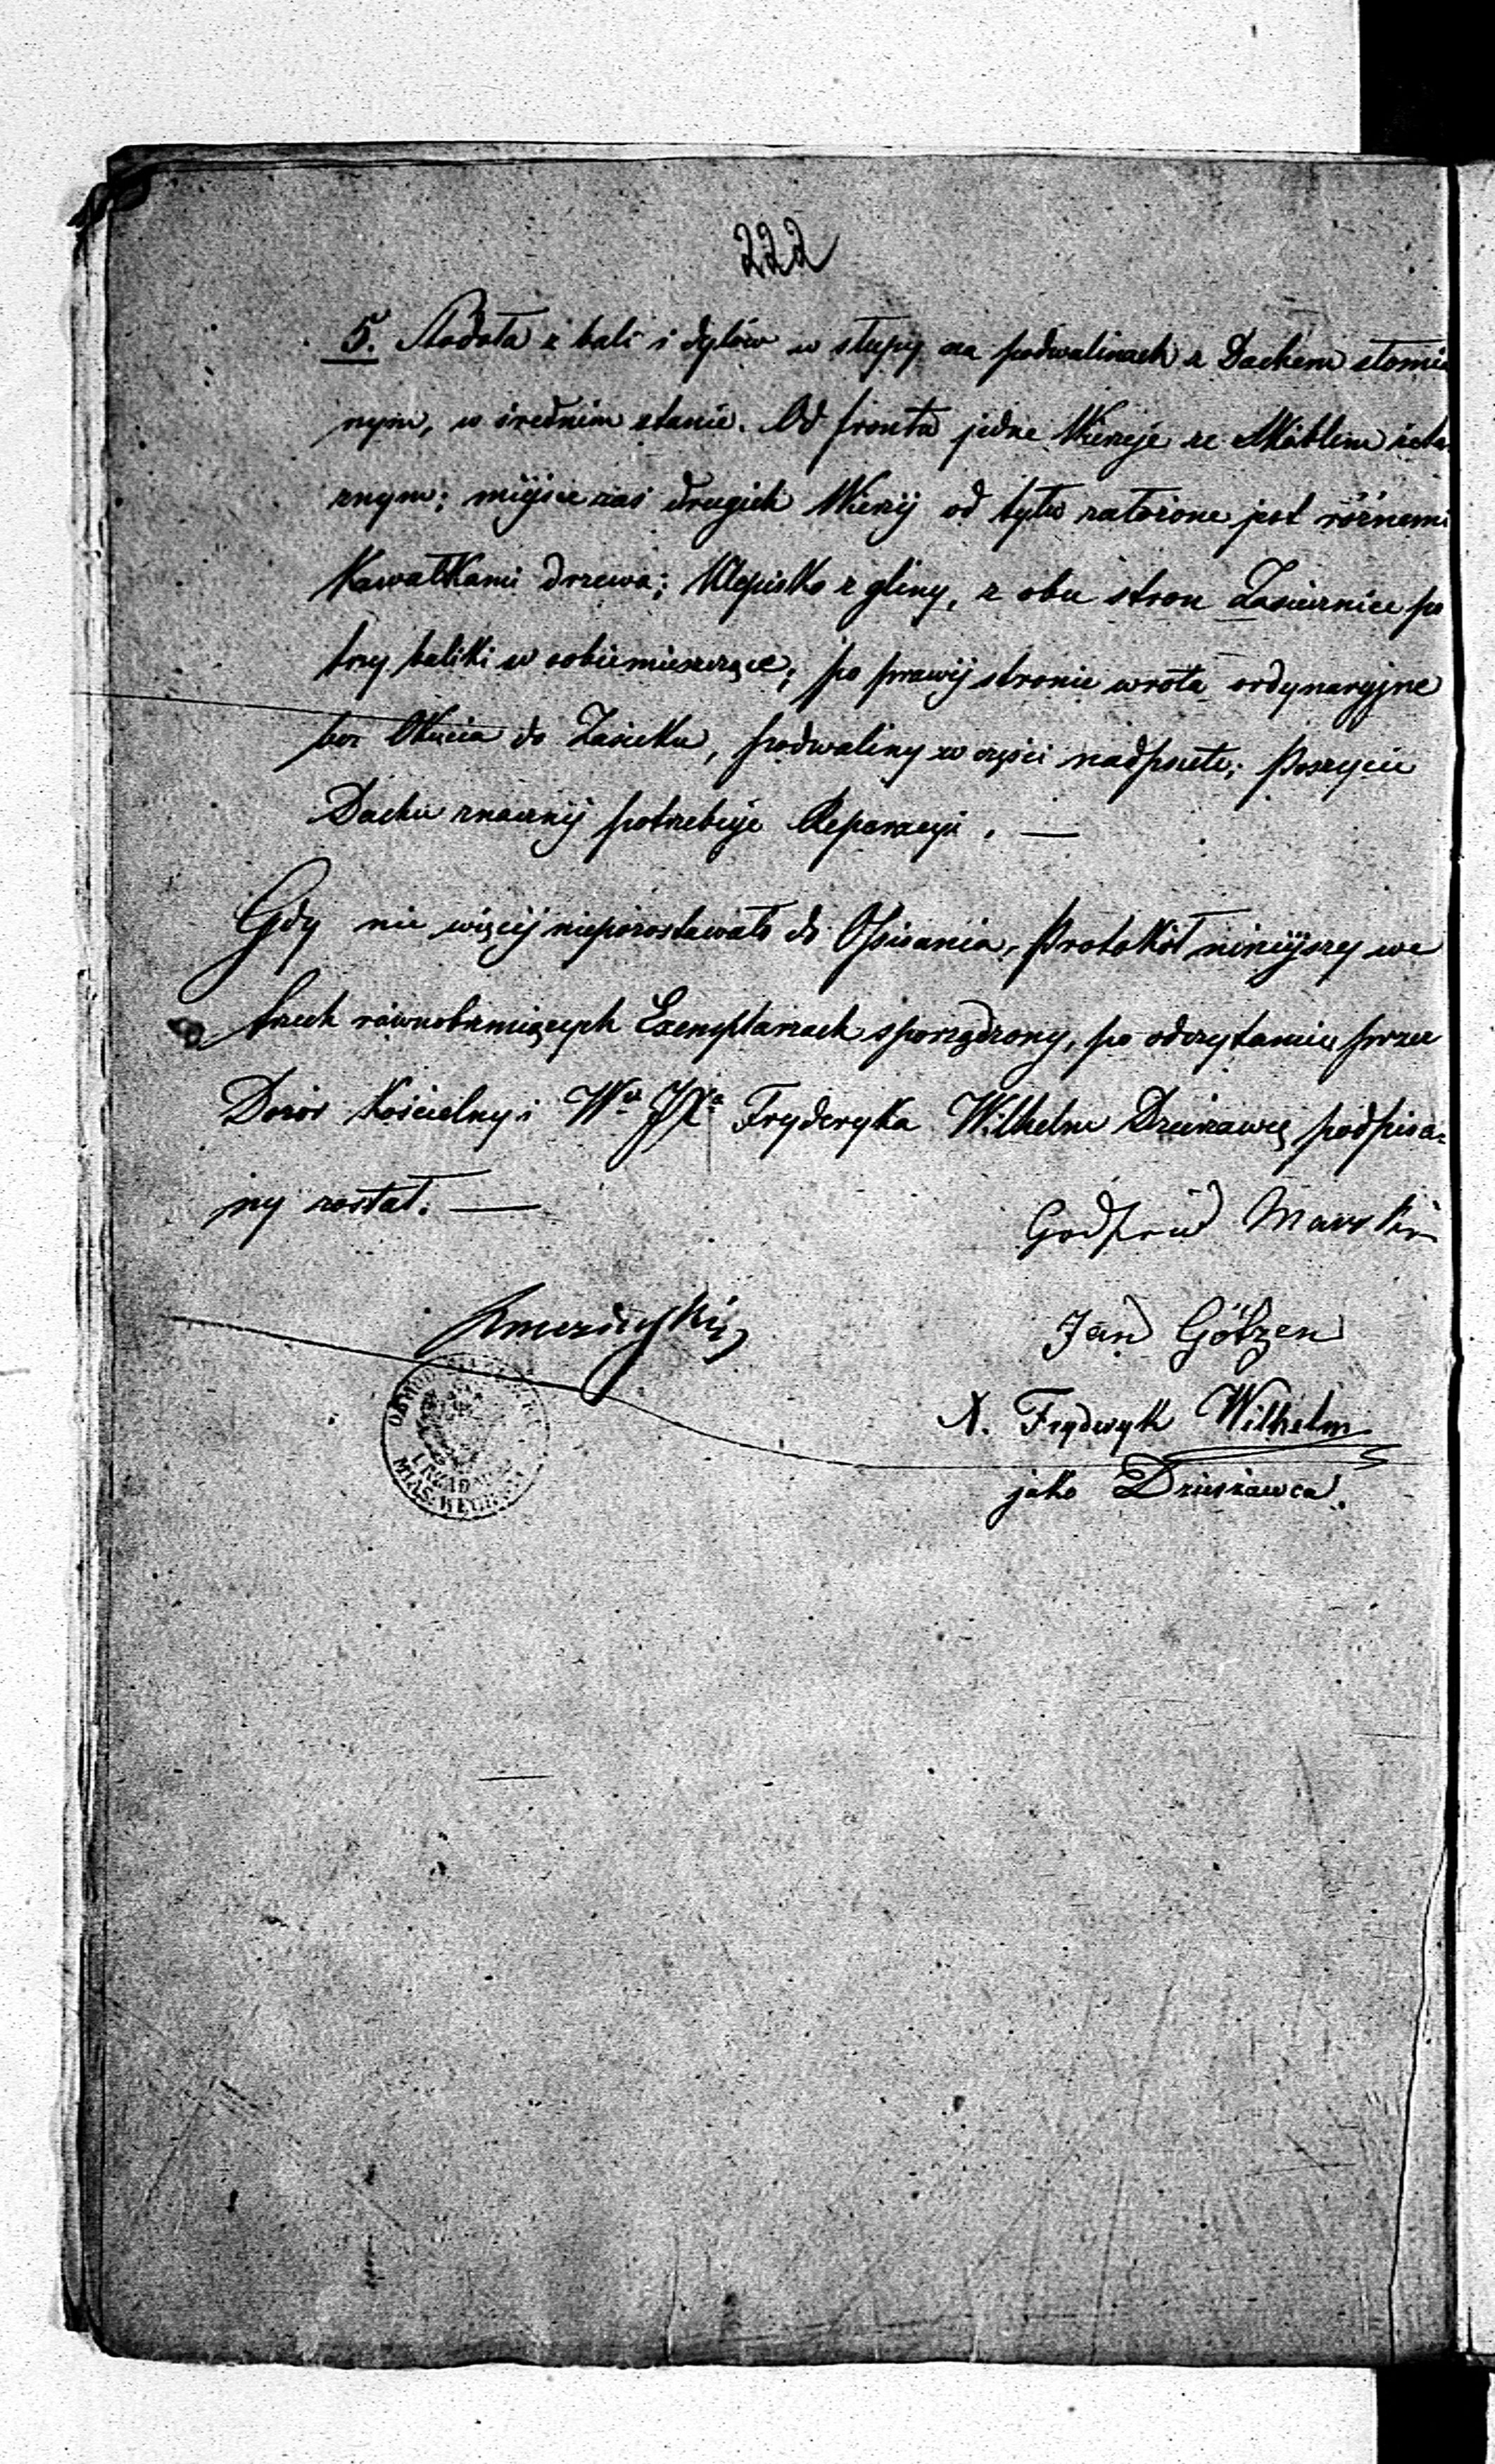 222
5. Stodoła z bali i dylów w słupy na podwalinach z Dachem słomia
nym, w średnim stanie. Od frontu jedne Wierzeje ze Skóblem żela
znym; miejsce zaś drugich Wierzej od tyłu założone jest różnemi
Kawałkami drzewa; Klepisko z gliny, z obu stron Zasiecznice po
trzy baliki w sobie mieszczące; po prawéj stronie wrota ordynaryjne
bez Okucia do Zasieku, podwaliny w części nadpsute; Poszycie
Dachu znacznéj potrzebuje Reparacyi. —
Gdy nic więcéj niepozostawało do Opisania, Protokół niniejszy we
trzech równobrzmiących Exemplarzach sporządzony, po odczytaniu przez
Dozór Kościelny i Wo JXa Fryderyka Wilhelm Dzierżawcę podpisa=
ny został. —
Godfried
Jan Götzen
X. Fryderyk Wilhelm
jako Dzierżawca.